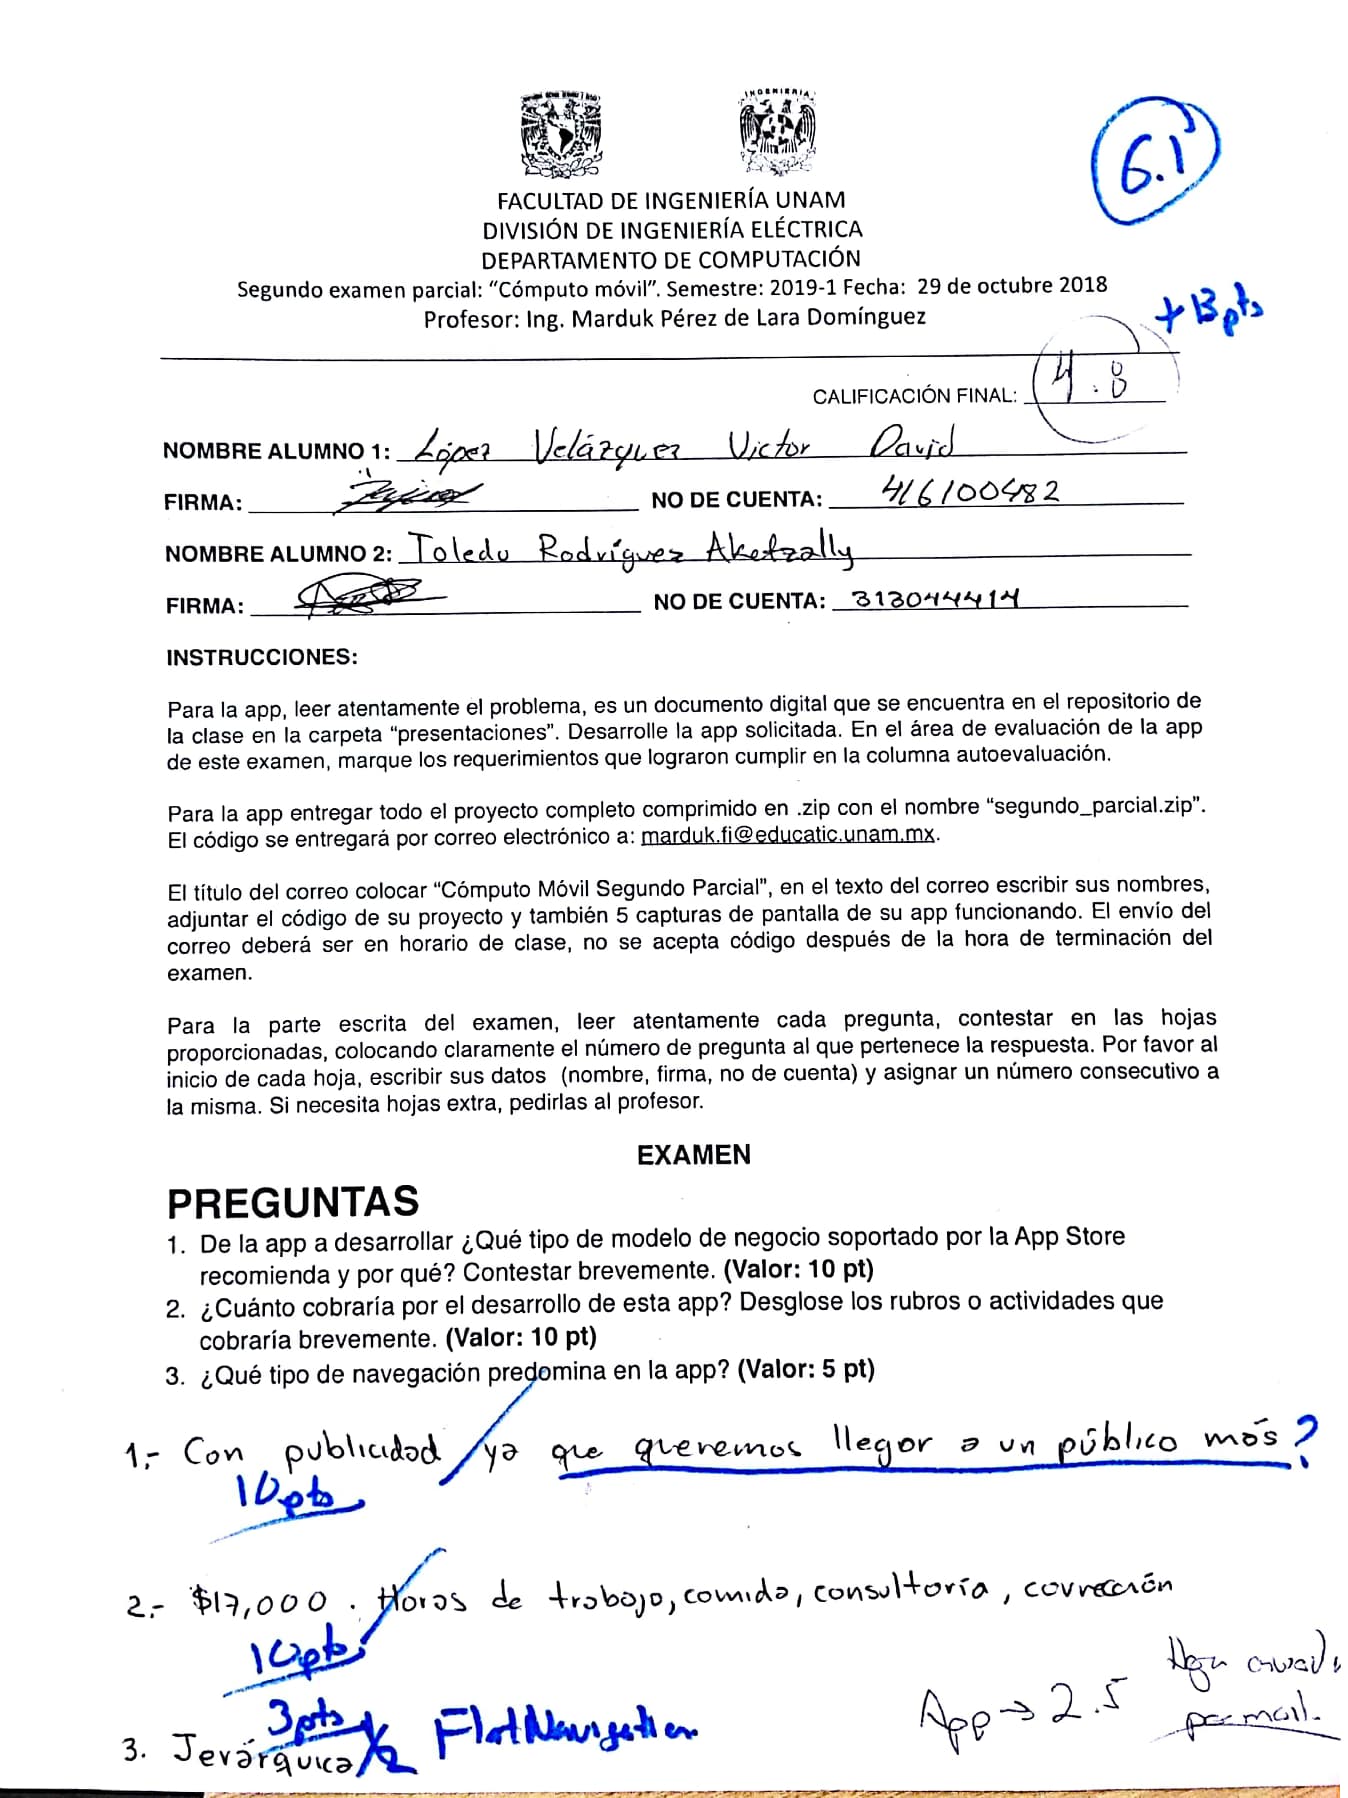 INGENIERIA
6.1
FACULTAD DE INGENIERÍA UNAM
DIVISIÓN DE INGENIERÍA ELÉCTRICA
DEPARTAMENTO DE COMPUTACIÓN
Segundo examen parcial: “Cómputo móvil”. Semestre: 2019-1 Fecha: 29 de octubre 2018
Profesor: Ing. Marduk Pérez de Lara Domínguez
+13pts
CALIFICACIÓN FINAL: 4.8
NOMBRE ALUMNO 1: López Velázquez Victor David
FIRMA: NO DE CUENTA: 416100482
NOMBRE ALUMNO 2: Toledo Rodríguez Aketzally
FIRMA: NO DE CUENTA: 313044414
INSTRUCCIONES:
Para la app, leer atentamente el problema, es un documento digital que se encuentra en el repositorio de
la clase en la carpeta “presentaciones”. Desarrolle la app solicitada. En el área de evaluación de la app
de este examen, marque los requerimientos que lograron cumplir en la columna autoevaluación.
Para la app entregar todo el proyecto completo comprimido en .zip con el nombre “segundo_parcial.zip”.
El código se entregará por correo electrónico a: marduk.fi@educatic.unam.mx.
El título del correo colocar “Cómputo Móvil Segundo Parcial”, en el texto del correo escribir sus nombres,
adjuntar el código de su proyecto y también 5 capturas de pantalla de su app funcionando. El envío del
correo deberá ser en horario de clase, no se acepta código después de la hora de terminación del
examen.
Para la parte escrita del examen, leer atentamente cada pregunta, contestar en las hojas
proporcionadas, colocando claramente el número de pregunta al que pertenece la respuesta. Por favor al
inicio de cada hoja, escribir sus datos (nombre, firma, no de cuenta) y asignar un número consecutivo a
la misma. Si necesita hojas extra, pedirlas al profesor.
EXAMEN
PREGUNTAS
1. De la app a desarrollar ¿Qué tipo de modelo de negocio soportado por la App Store
recomienda y por qué? Contestar brevemente. (Valor: 10 pt)
2. ¿Cuánto cobraría por el desarrollo de esta app? Desglose los rubros o actividades que
cobraría brevemente. (Valor: 10 pt)
3. ¿Qué tipo de navegación predomina en la app? (Valor: 5 pt)
1.- Con publicidad ya que queremos llegar a un público más ?
10pts
2.- $17,000 . Horas de trabajo, comida, consultoría, corrección
10pts
3pts
App → 2.5
por mail.
3. Jerárquica 1/2 Flat Navigation